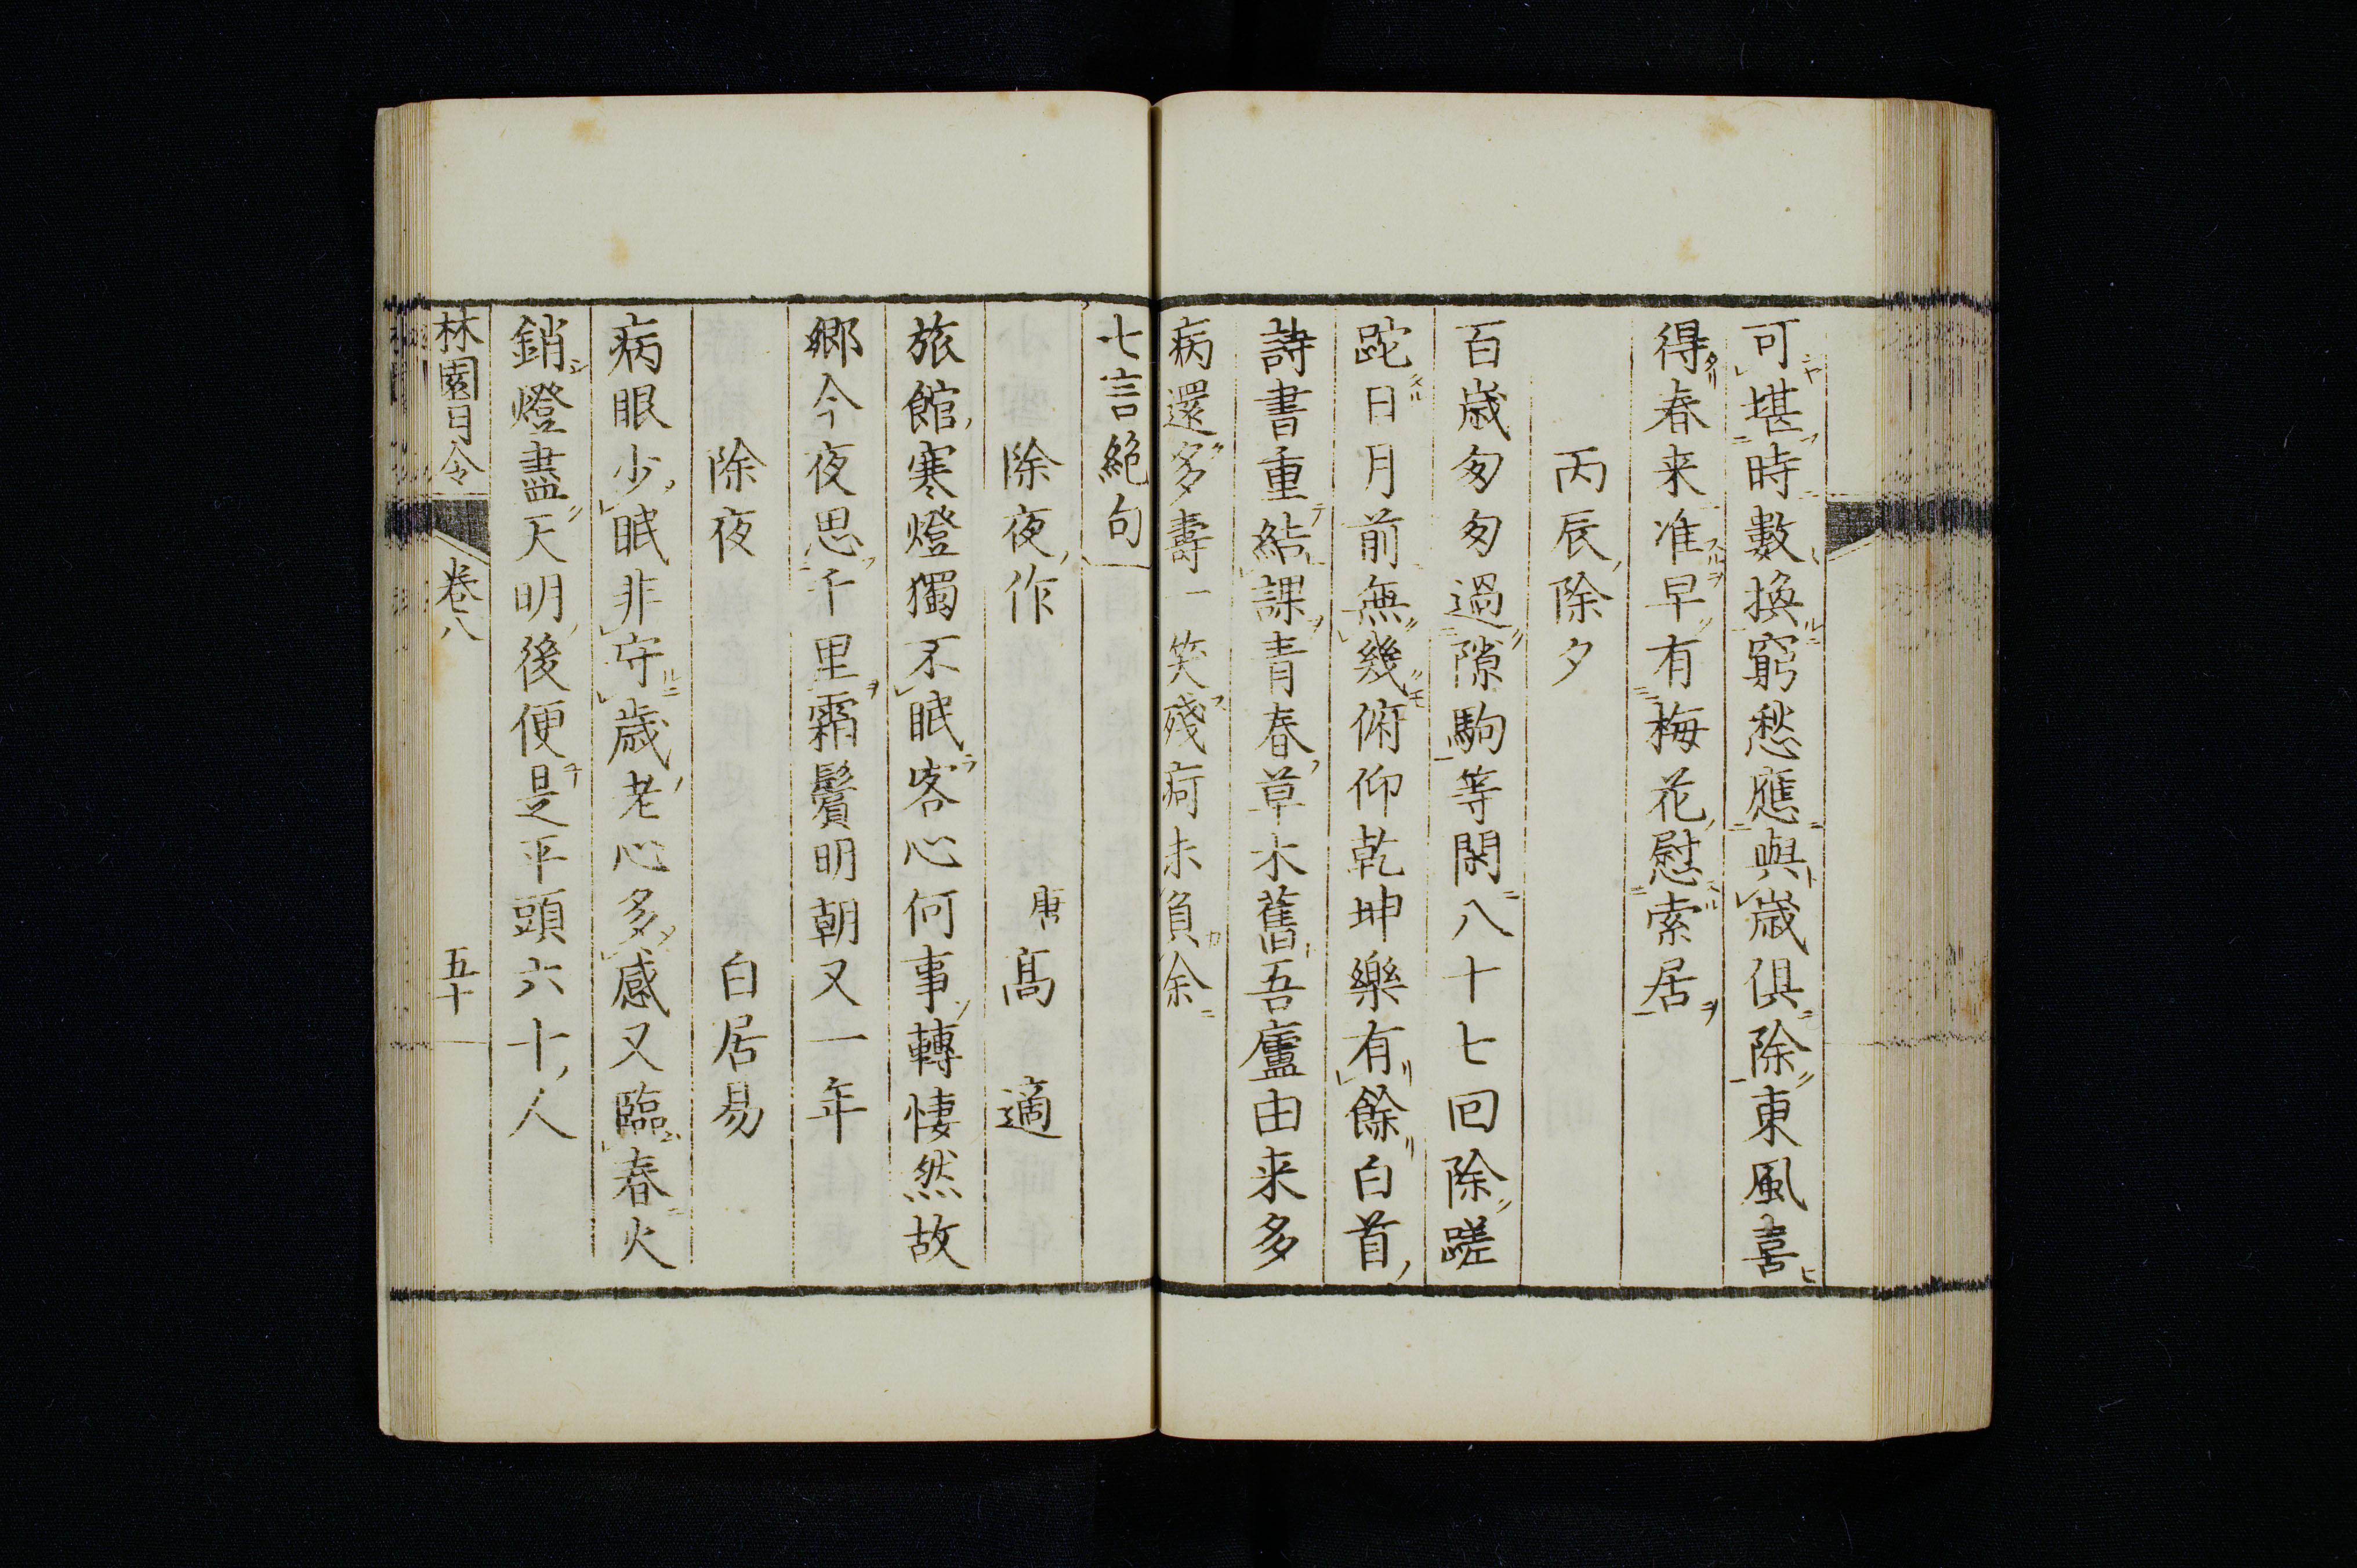 可堪時數換窮愁應與歳俱除東風喜
得春来准早有梅花慰索居
丙辰除夕
百歳匆匆過隙駒等閑八十七回除蹉
跎日月前無幾俯仰乾坤樂有餘白首
詩書重結課青春草木舊吾廬由来多
病還多壽一笑殘疴未負余
七言絶句
除夜作 唐 高適
旅館寒燈獨不眠客心何事轉悽然故
鄉今夜思千里霜鬢明朝又一年
除夜 白居易
病眼少眠非守歳老心多感又臨春火
銷燈盡天明後便是平頭六十人
林園月令 卷八 五十